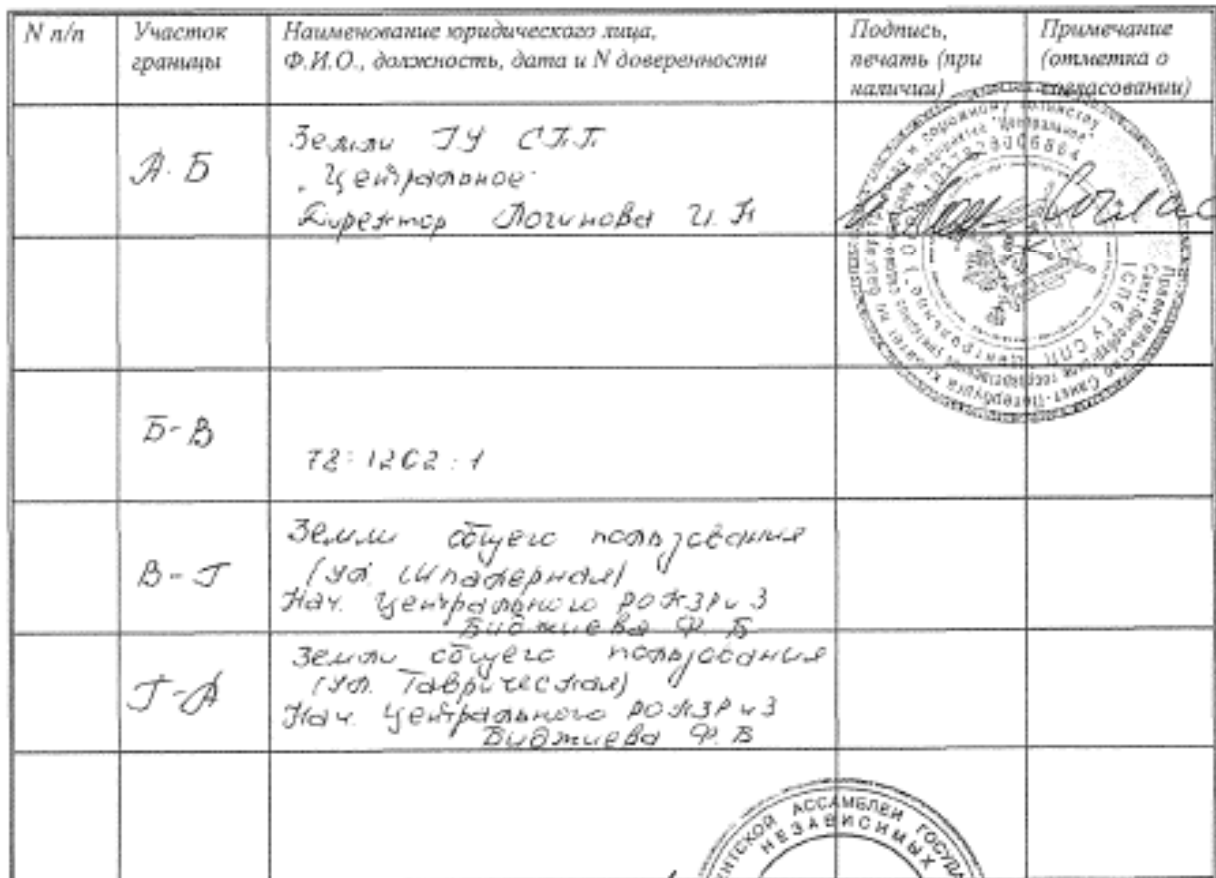 N п/п
Участок
границы
Наименование юридического лица,
Ф.И.О., должность, дата и N доверенности
Подпись,
печать (при
наличии)
Примечание
(отметка о
согласовании)
А-Б
Земли ГУ СПП
"Центральное"
Директор Логинова И. Н
Соглас
Правительство Санкт-Петербурга
СПб ГУ СПП "Центральное"
Б-В
78:1202:1
В-Г
Земли общего пользования
(ул. Шпалерная)
Нач. Центрального РОКЗР и З
Биджиева Ф. Б
Г-А
Земли общего пользования
(ул. Таврическая)
Нач. Центрального РОКЗР и З
Биджиева Ф. Б
АССАМБЛЕИ
НЕЗАВИСИМЫХ